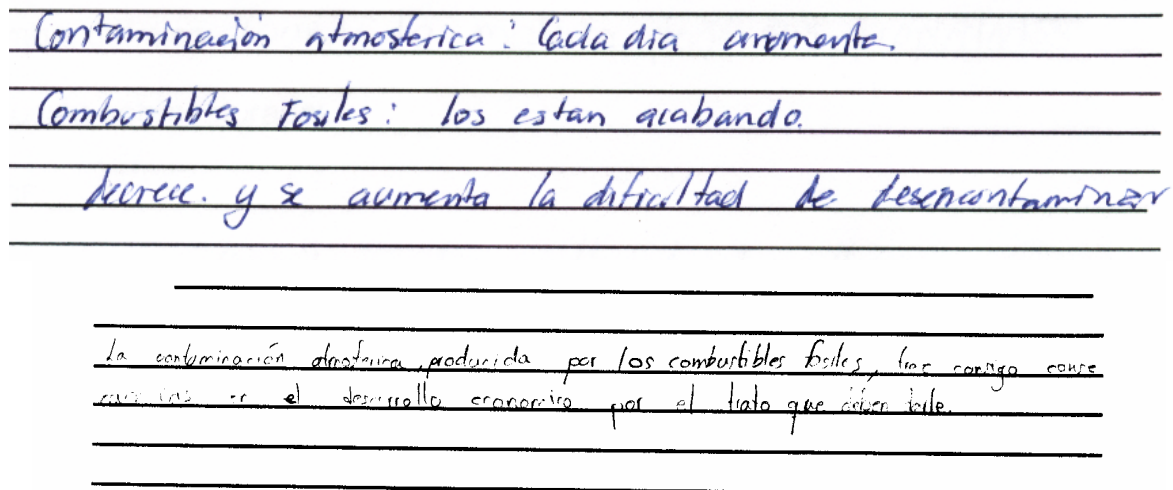 Contaminación atmosferica: Cada dia aumenta.
Combustibles Fosiles: los estan acabando.
decrece. y se aumenta la dificultad de desencontaminar
La contaminación atmosferica, producida por los combustibles fosiles, trae consigo conse
cuencias en el desarrollo economico por el trato que deben